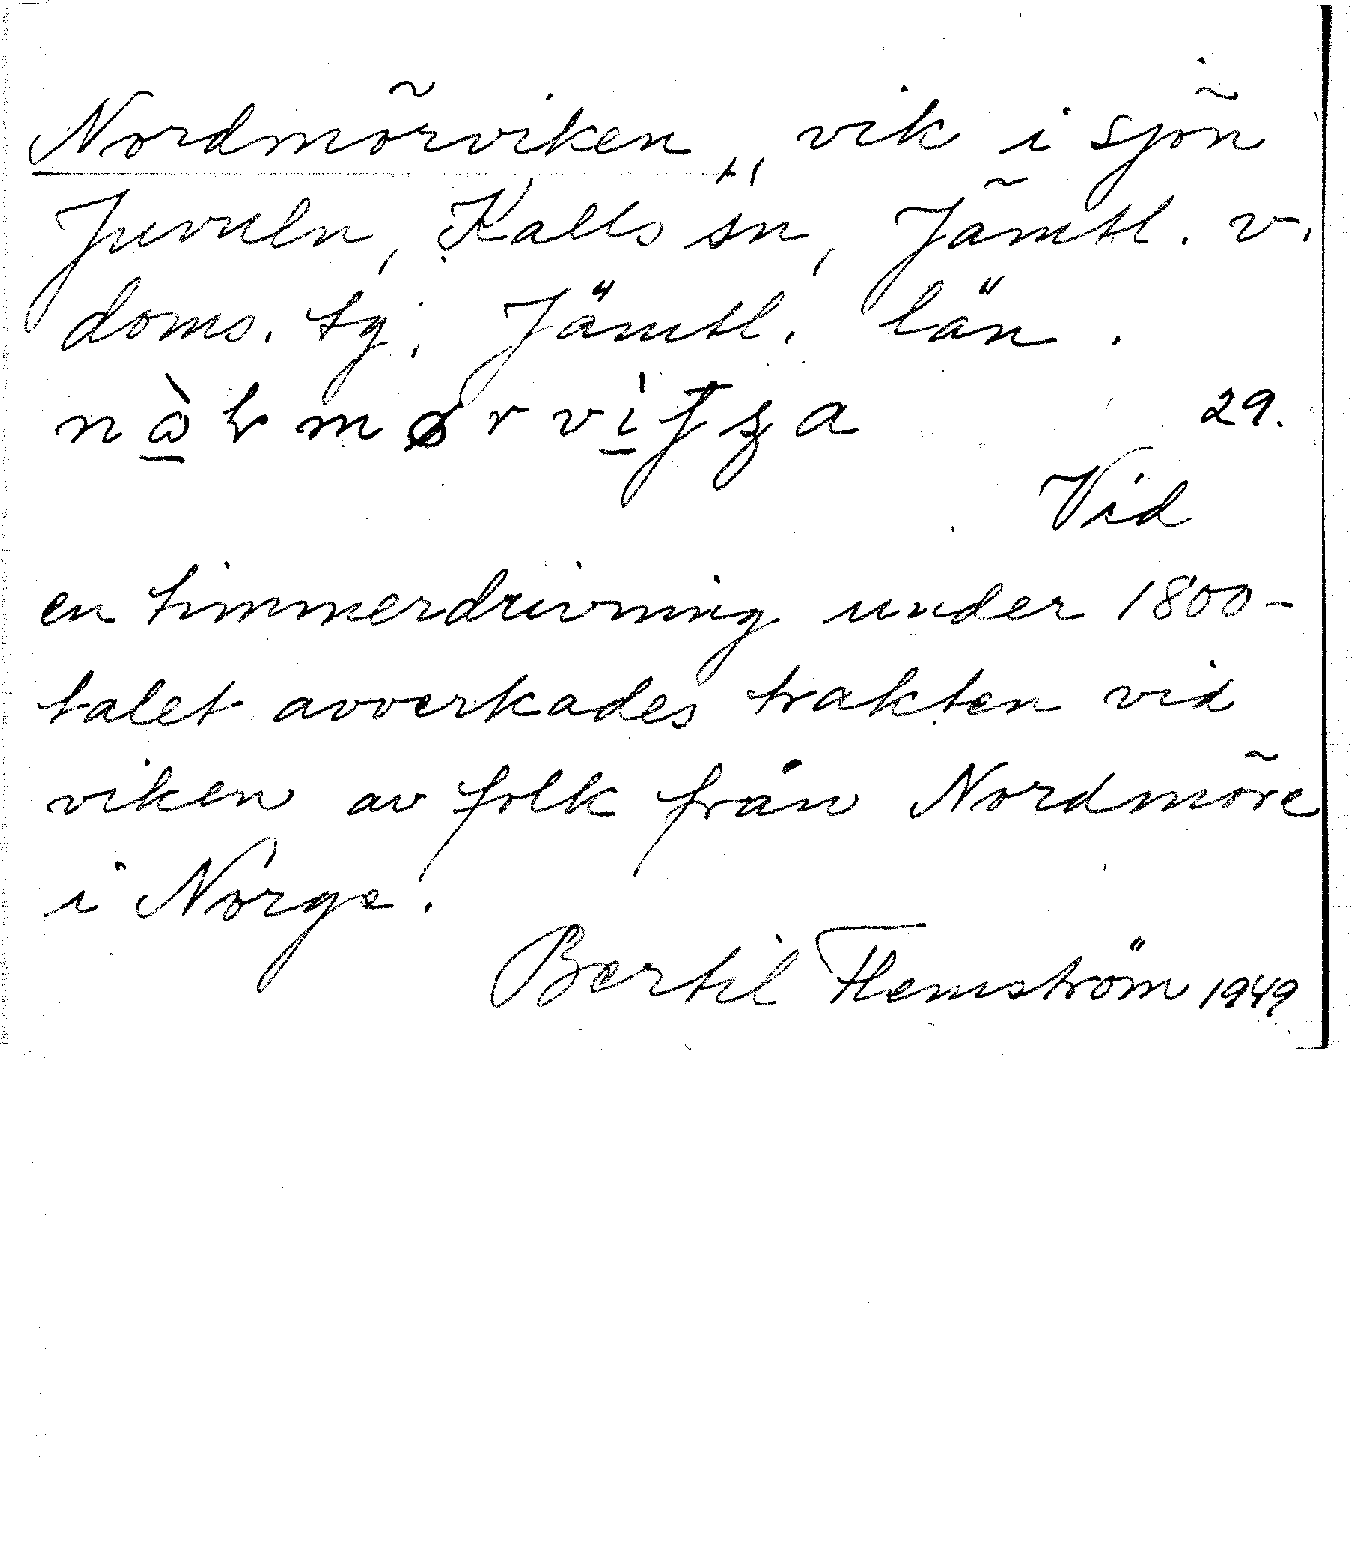 Nordmörviken, vik i sjön
Juvuln, Kalls sn, Jämtl. v.
doms. tg, Jämtl. län.
29.
Vid
en timmerdrivning under 1800-
talet avverkades trakten vid
viken av folk från Nordmöre
i Norge.
Bertil Flemström 1949